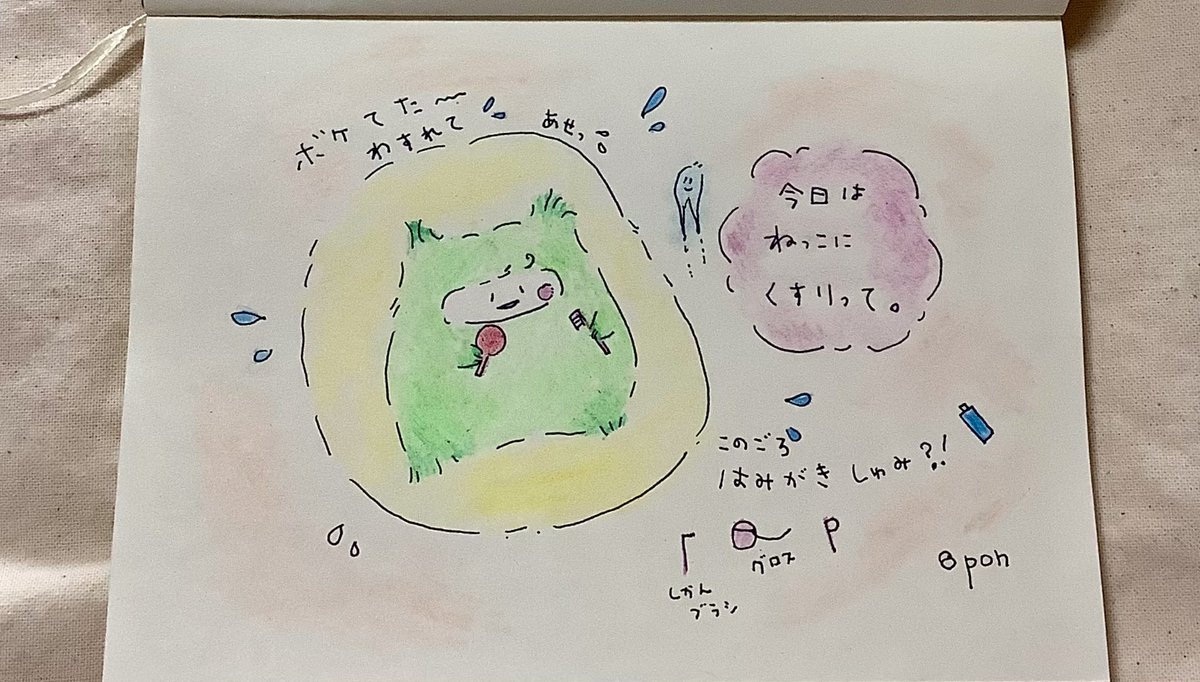 ボケてた〜
わすれて
あせっ
今日は
ねっこに
くすりって。
このごろ
はみがきしゅみ?!
しかん
ブラシ
グロス
opon